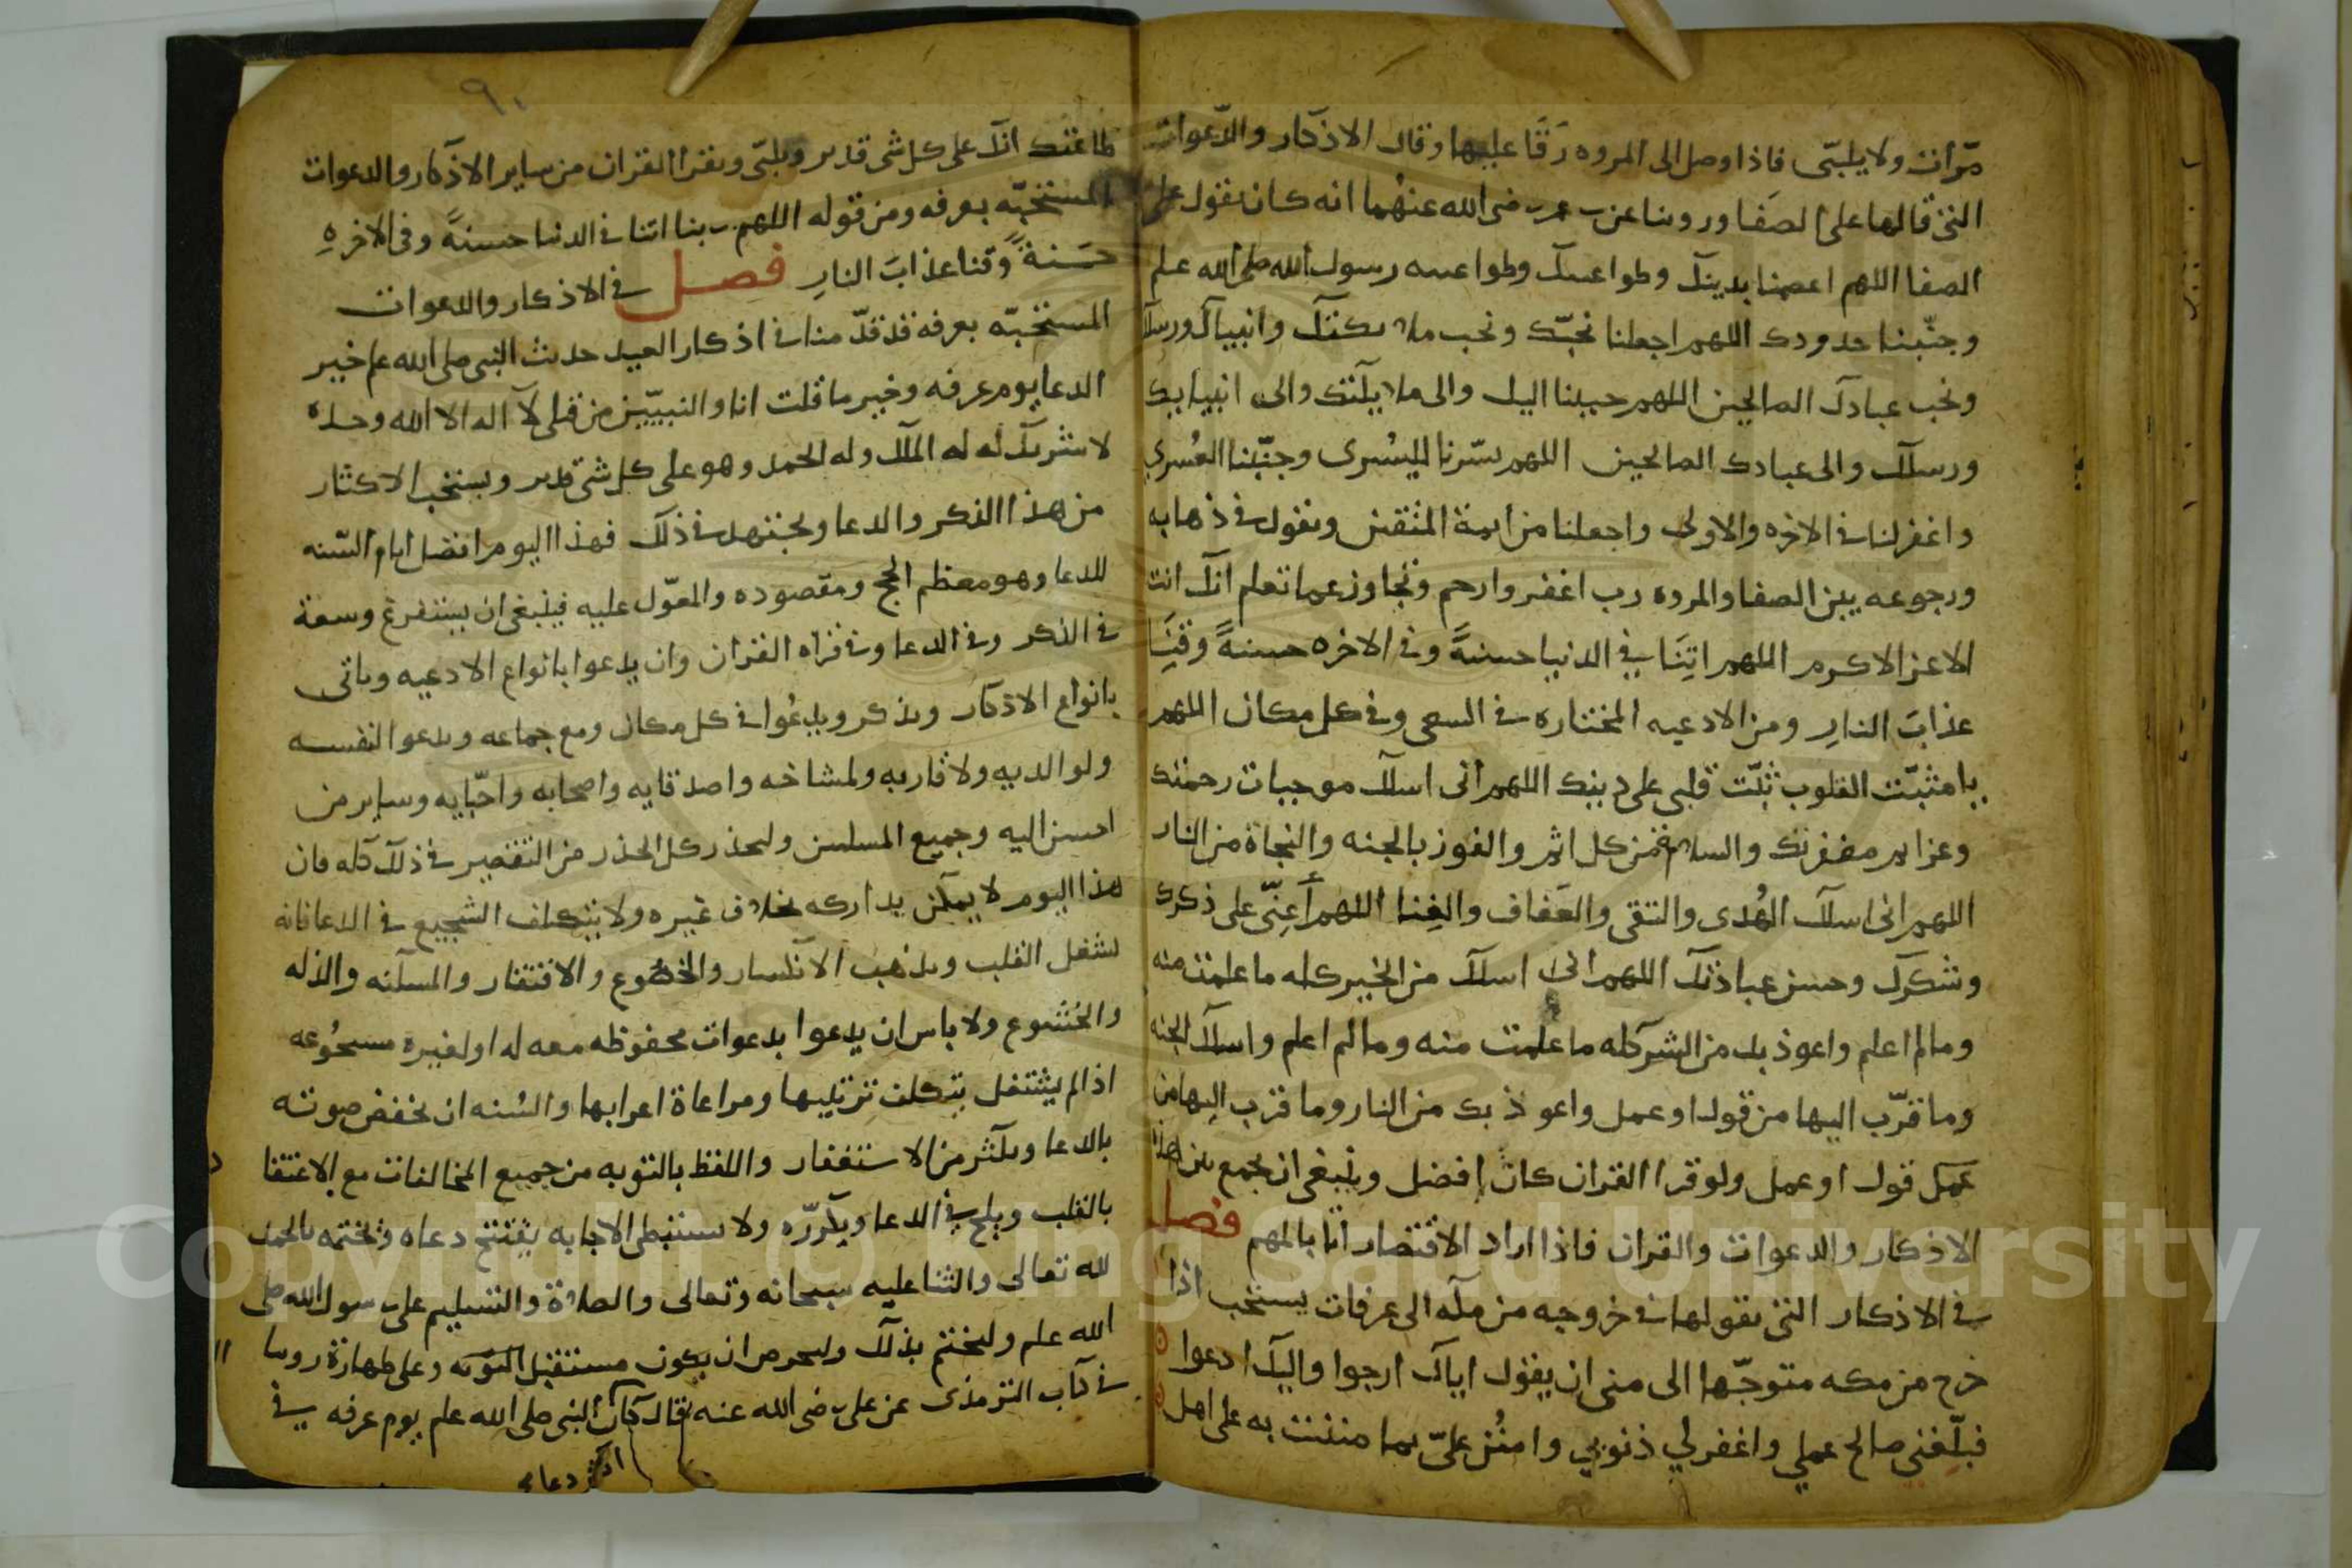 مرّات ولا يلبّى فاذا وصل الى المروه رَقَا عليها وقال الاذكار والدّعوات
التى قالها على الصَفا وروينا عن بن عمر رضى الله عنهُما انه كان يقول على
الصفا اللهم اعصمنا بدينك وطواعيتك وطواعيه رسولك صلى الله علم
وجنّبنا حدودك اللهم اجعلنا نحبّك ونحب ملايكتك وانبياك ورسلك
ونحب عبادك الصالحين اللهم حببنا اليك والى ملايكتك والى انبيايك
ورسلك والى عبادك الصالحين اللهم يسّرنا لليُسرى وجنّبنا العُسرى
واغفر لنا فى الاخره والاولى واجعلنا من ايمة المتقين ويقول فى ذهابه
ورجوعه بين الصفا والمروه رب اغفر وارحم وتجاوز عما تعلم انك انت
الاعز الاكرم اللهم اتِنَا فِي الدنيا حسنةً وفى الاخره حسنةً وقنَِا
عذابَ النارِ ومن الادعيه المختاره فى السعى وفى كل مكان اللهم
يا مثبّت القلوب ثبّت قلبى على دينك اللهم انى اسلك موجبات رحمتك
وعزايم مغفرتك والسلامة من كل اثم والفوز بالجنه والنجاة من النار
اللهم انى اسلك الهُدى والتقى والعَفاف والغِنا اللهم أَعِنّى على ذكرك
وشكرك وحسن عبادتك اللهم انى اسلك من الخير كله ما علمت منه
وما لم اعلم واعوذ بك من الشر كله ما علمت منه وما لم اعلم واسلك الجنه
وما قرّب اليها من قول او عمل واعوذ بك من النار وما قرب اليها من
قول او عمل ولو قرا القران كان افضل وينبغى ان يجمع بين هذه
الاذكار والدعوات والقران فاذا اراد الاقتصار اتا بالمهم فصل
فى الاذكار التى يقولها فى خروجه من مكه الى عرفات يستحب اذا
خرج من مكه متوجّها الى منى ان يقول اياك ارجوا واليك ادعوا
فبلّغنى صالح عملي واغفر لي ذنوبي وامنُن علىّ بما مننت به على اهل
٩٠
طاعتك انك على كل شى قدير ويلبّى ويقرا القران من ساير الاذكار والدعوات
المستحبّه بعرفه ومن قوله اللهم ربنا اتنا فى الدنيا حسنةً وفى الاخرهِ
حَسَنةً وقنا عذابَ النارِ فصل فى الاذكار والدعوات
المستحبّه بعرفه قد قدّمنا فى اذكار العيد حديث النبى صلى الله علم خير
الدعا يوم عرفه وخير ما قلت انا والنبيّين من قبلى لا اله الا الله وحده
لا شريك له له الملك وله الحمد وهو على كل شى قدير ويستحب الاكثار
من هذا الذكر والدعا ويجتهد فى ذلك فهذا اليوم افضل ايام السّنه
للدعا وهو معظم الحج ومقصوده والمعوّل عليه فينبغى ان يستفرغ وسعة
فى الذكر وفى الدعا وفى قراه القران وان يدعوا بانواع الادعيه وياتى
بانواع الاذكار ويذكر ويدعُوا فى كل مكان ومع جماعه ويدعوا لنفسه
ولوالديه ولاقاربه ولمشاخه واصدقايه واصحابه واحبّايه وساير من
احسن اليه وجميع المسلمين وليحذر كل الحذر من التقصير فى ذلك كله فان
هذا اليوم لا يمكن يداركه بخلاف غيره ولا يتكلف السجيع فى الدعا فانه
يشغل القلب ويذهب الانكسار والخضوع والافتقار والمسكنه والذله
والخشوع ولا باس ان يدعوا بدعوات محفوظه معه له او لغيره مسجُوعه
اذا لم يشتغل بتكلف ترتيبها ومراعاة اعرابها والسُنه ان يخفض صوته
بالدعا ويكثر من الاستغفار واللفظ بالتوبه من جميع المخالفات مع الاعتقاد
بالقلب ويلح فى الدعا ويكرّره ولا يستبطى الاجابه يفتتح دعاه ويختمه بالحمد
لله تعالى والثنا عليه سبحانه وتعالى والصلاة والتسليم على رسول الله صلى
الله علم وليختم بذلك وليحرص ان يكون مستقبل الكعبه وعلى طهارة روينا
فى كتاب الترمذى عن على رضى الله عنه قال كان النبى صلى الله علم يوم عرفه فى
اكثر دعايه
Copyright © King Saud University